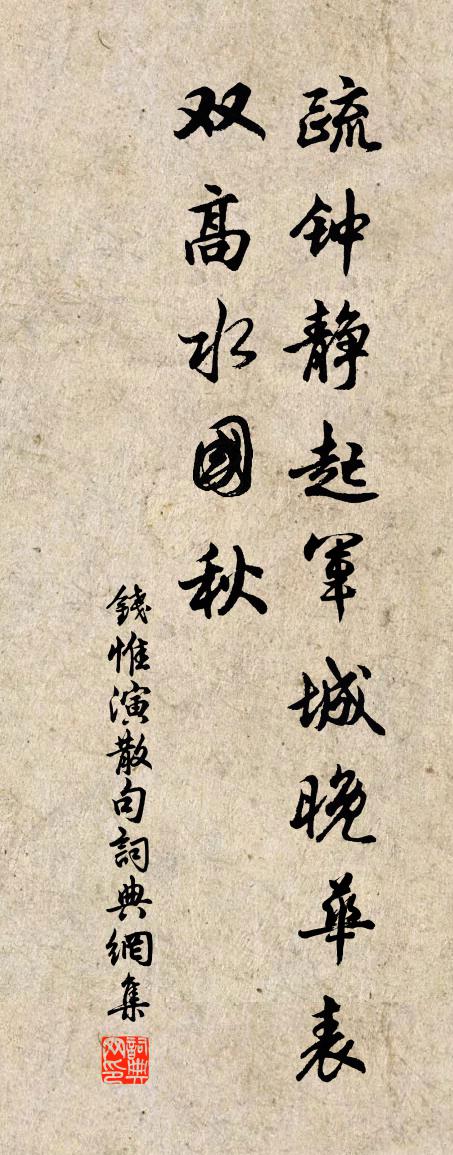 疏钟静起军城晚华表
双高水国秋
錢惟演散句詞典網集
詞典网印